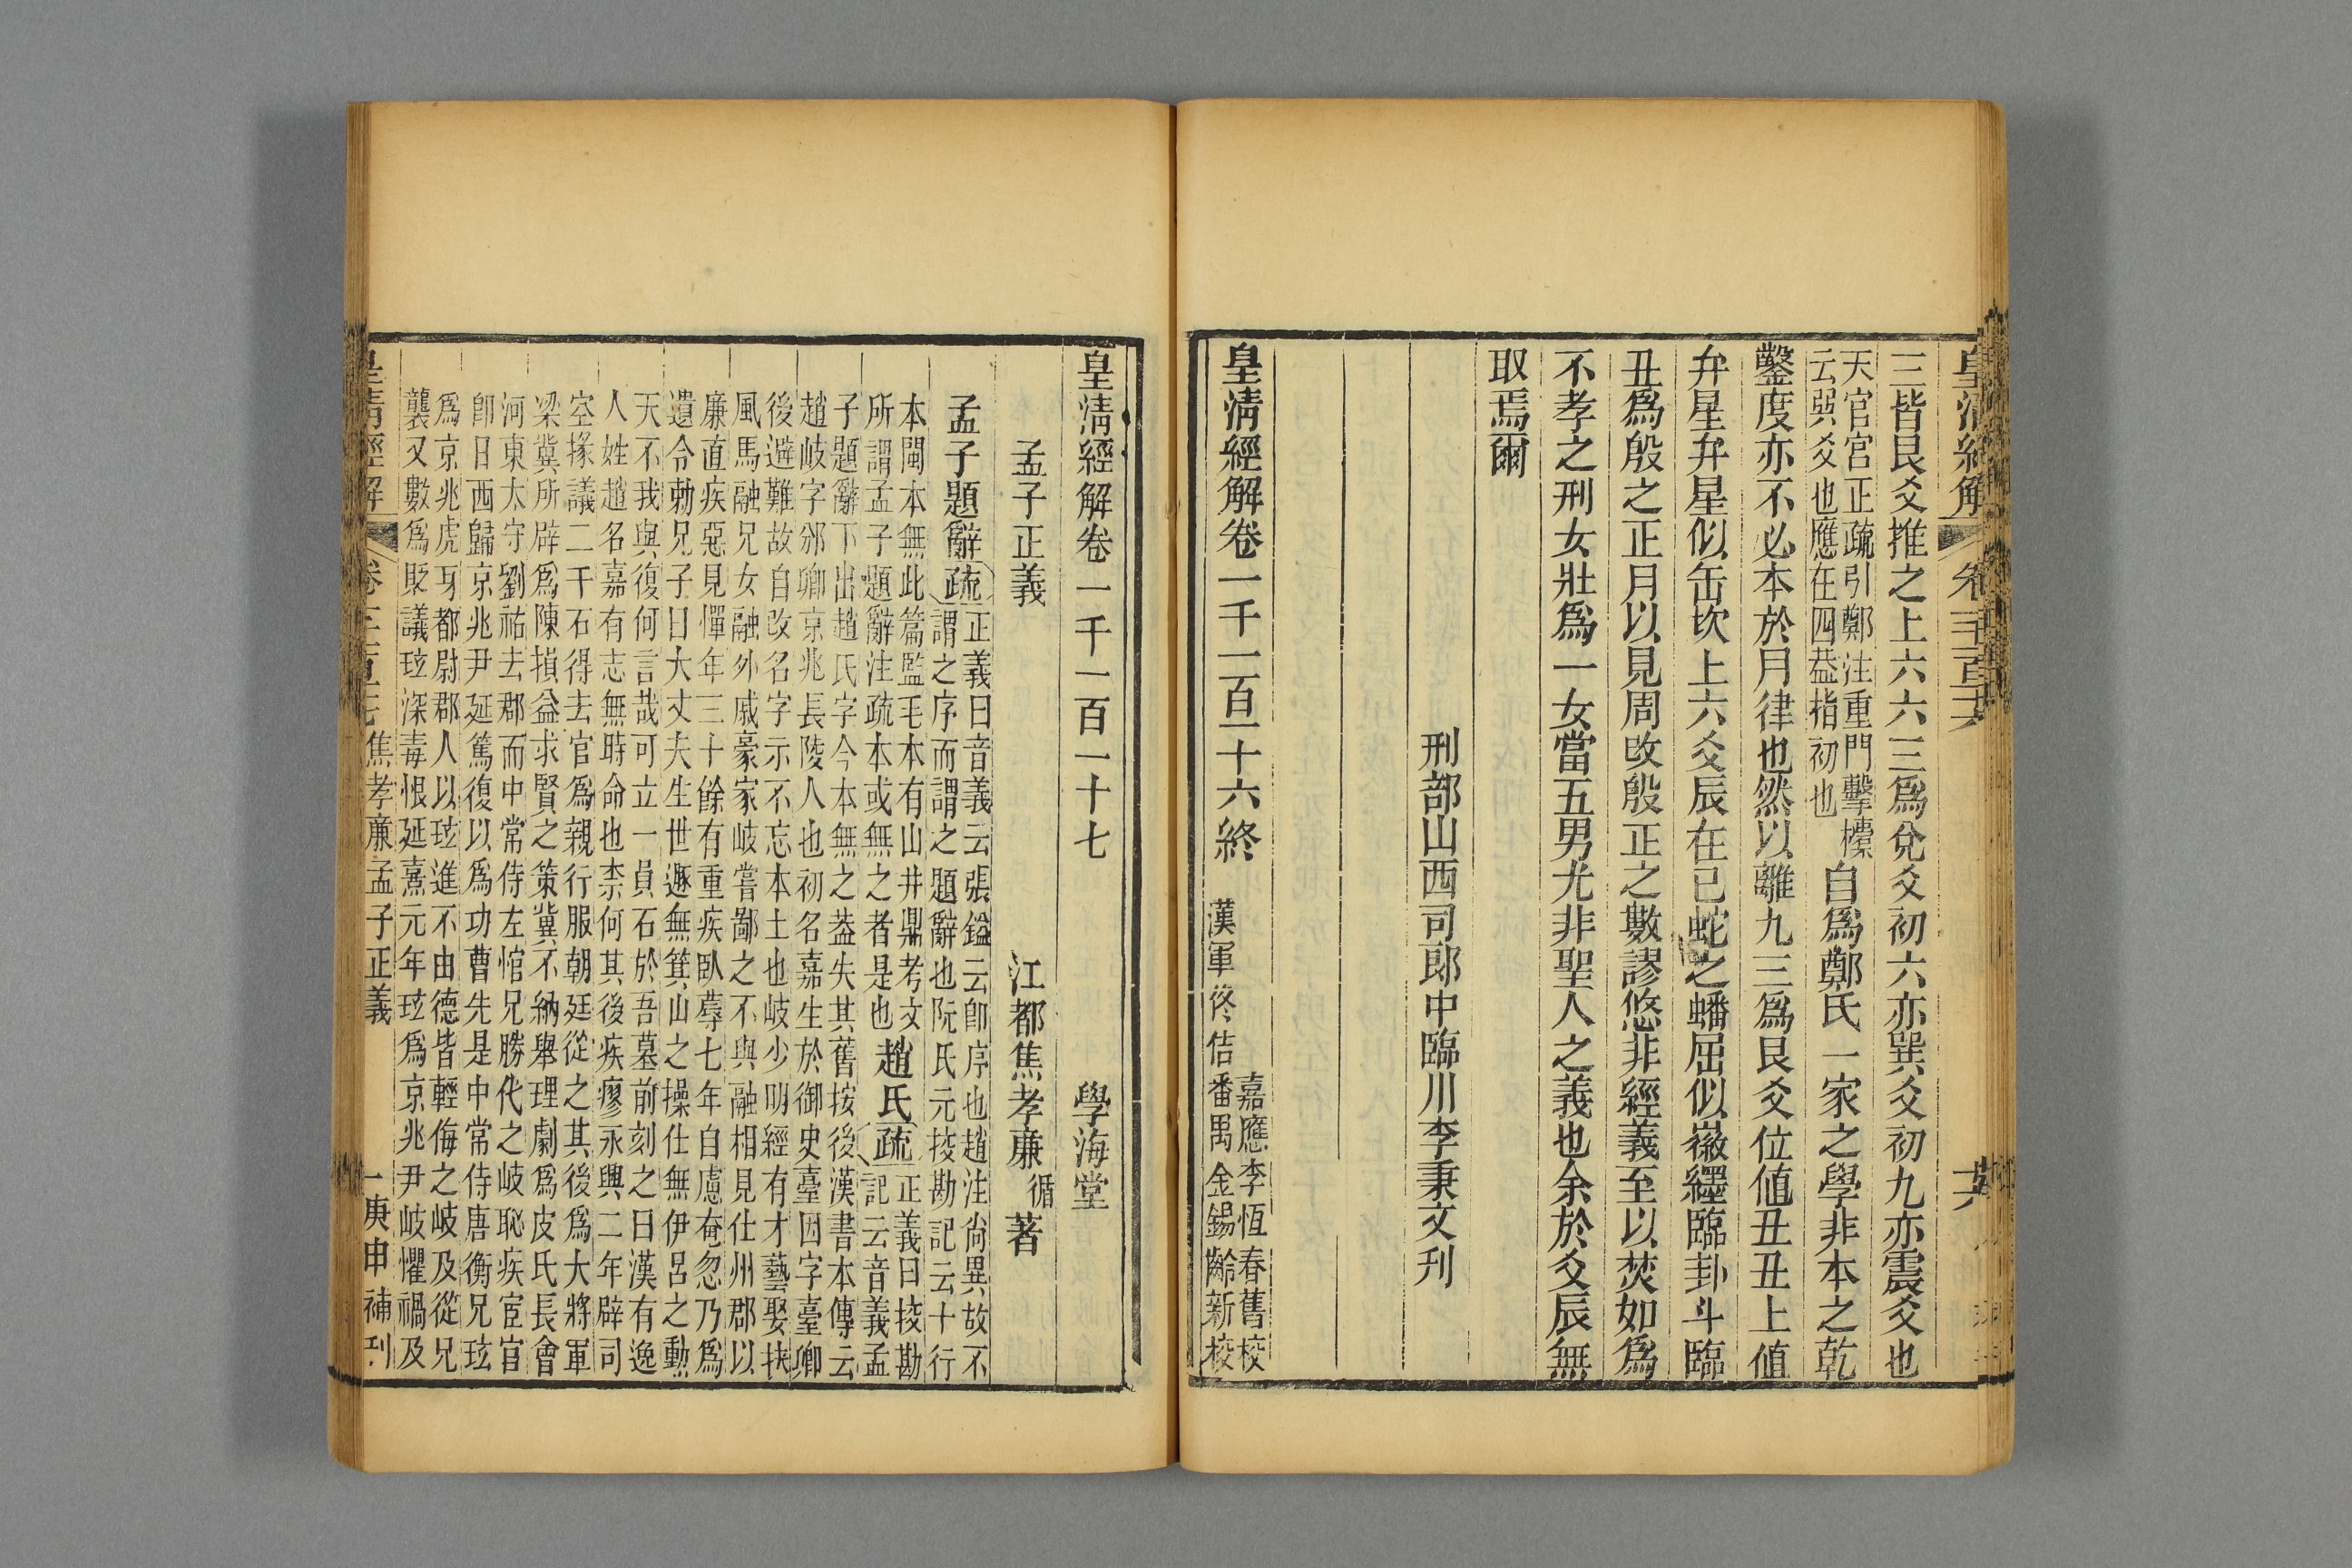 三皆艮爻推之上六六三爲兌爻初六亦巽爻初九亦震爻也
天官宮正疏引鄭注重門擊㯓
云巽爻也應在四葢指初也
自爲鄭氏一家之學非本之乾
鑿度亦不必本於月律也然以離九三爲艮爻位値丑丑上値
弁星弁星似缶坎上六爻辰在已蛇之蟠屈似徽纆臨卦斗臨
丑爲殷之正月以見周改殷正之數謬悠非經義至以焚如爲
不孝之刑女壯爲一女當五男尤非聖人之義也余於爻辰無
取焉爾
刑部山西司郎中臨川李秉文刋
皇淸經解卷一千一百一十六終
漢軍佟佶
嘉應李恆春舊校
番禺金錫齡新校
皇淸經解卷一千一百一十七
學海堂
孟子正義
江都焦孝廉循著
孟子題辭
疏
正義曰音義云張鎰云卽序也趙注尙異故不
謂之序而謂之題辭也阮氏元挍勘記云十行
本閩本無此篇監毛本有山井鼎考文
所謂孟子題辭注疏本或無之者是也
趙氏
疏
正義曰挍勘
記云音義孟
子題辭下出趙氏字今本無之葢失其舊按後漢書本傳云
趙岐字邠卿京兆長陵人也初名嘉生於御史臺因字臺卿
後避難故自改名字示不忘本土也岐少明經有才藝娶扶
風馬融兄女融外戚豪家岐嘗鄙之不與融相見仕州郡以
廉直疾惡見憚年三十餘有重疾臥蓐七年自慮奄忽乃爲
遺令勅兄子曰大丈夫生世遯無箕山之操仕無伊呂之勳
天不我與復何言哉可立一員石於吾墓前刻之曰漢有逸
人姓趙名嘉有志無時命也柰何其後疾瘳永興二年辟司
空掾議二千石得去官爲親行服朝廷從之其後爲大將軍
梁冀所辟爲陳損益求賢之策冀不納舉理劇爲皮氏長會
河東太守劉祐去郡而中常侍左悺兄勝代之岐恥疾宦官
卽日西歸京兆尹延篤復以爲功曹先是中常侍唐衡兄玹
爲京兆虎牙都尉郡人以玹進不由德皆輕侮之岐及從兄
襲又數爲貶議玹深毒恨延熹元年玹爲京兆尹岐懼禍及
皇淸經解
焦孝廉孟子正義
一
庚申補刋